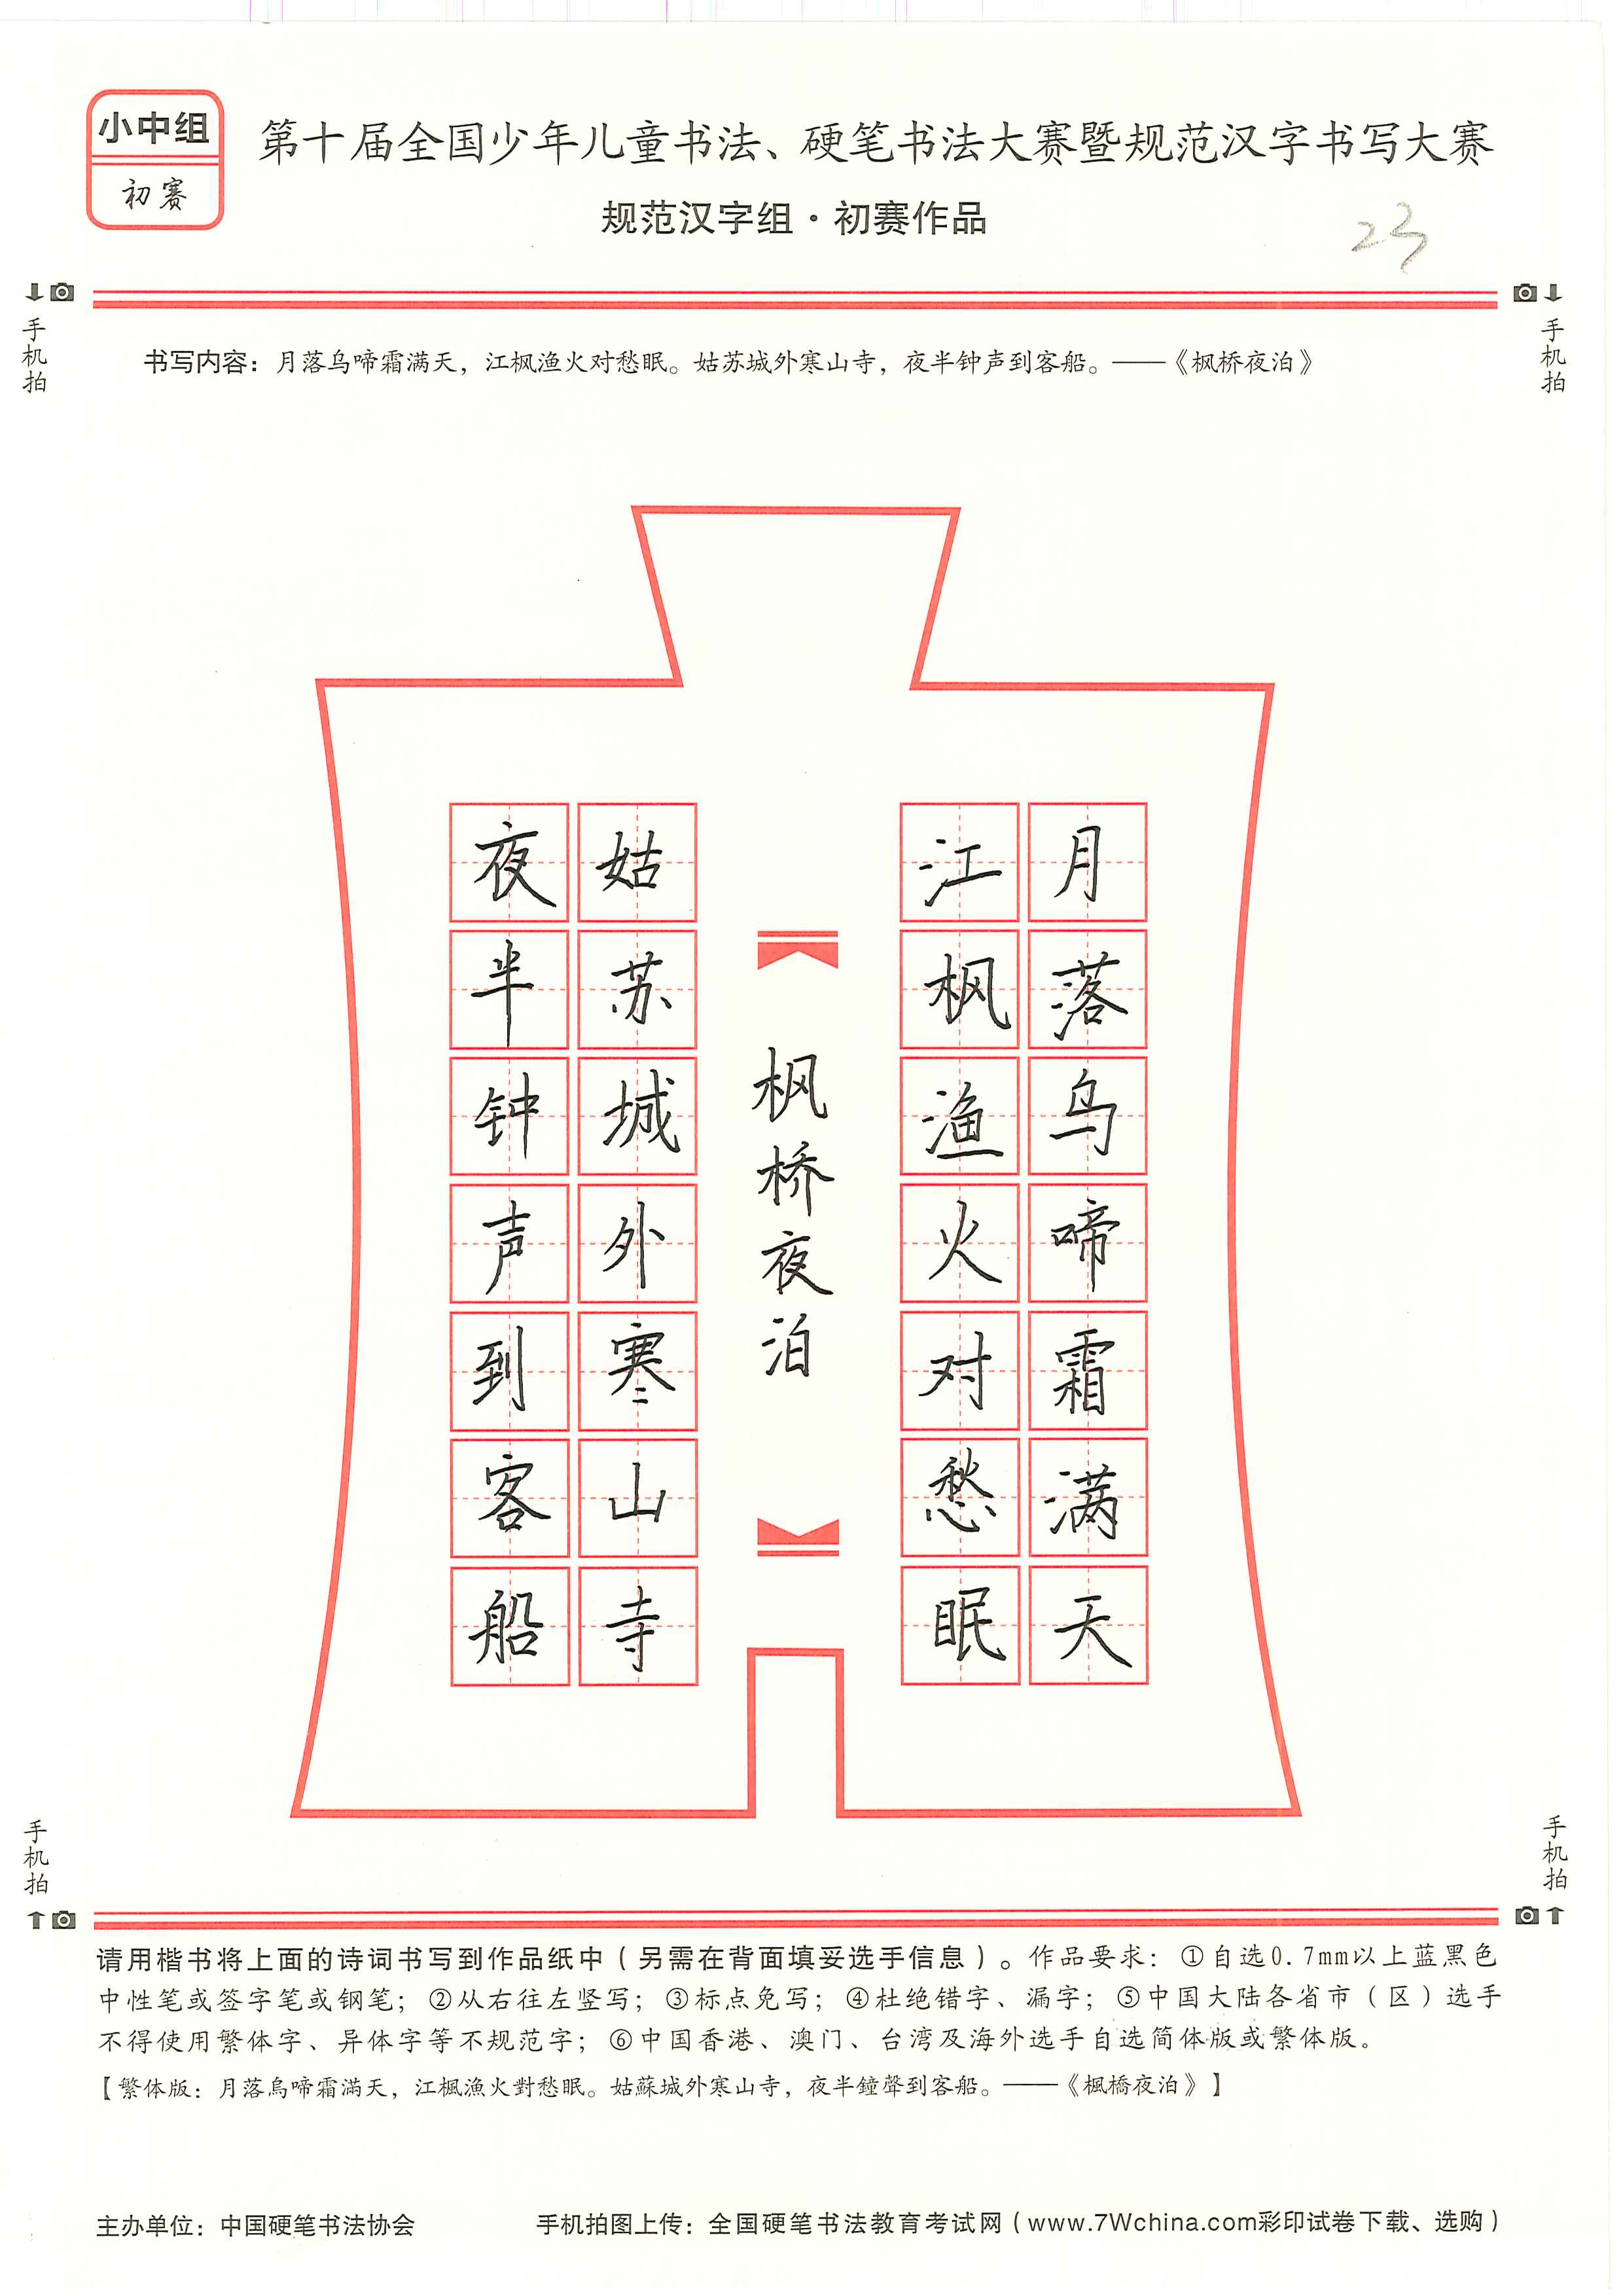 小中组
初赛
第十届全国少年儿童书法、硬笔书法大赛暨规范汉字书写大赛
规范汉字组·初赛作品
23
手机拍
手机拍
书写内容：月落乌啼霜满天，江枫渔火对愁眠。姑苏城外寒山寺，夜半钟声到客船。——《枫桥夜泊》
月落乌啼霜满天
江枫渔火对愁眠
枫桥夜泊
姑苏城外寒山寺
夜半钟声到客船
手机拍
手机拍
请用楷书将上面的诗词书写到作品纸中（另需在背面填妥选手信息）。作品要求：①自选0.7mm以上蓝黑色
中性笔或签字笔或钢笔；②从右往左竖写；③标点免写；④杜绝错字、漏字；⑤中国大陆各省市（区）选手
不得使用繁体字、异体字等不规范字；⑥中国香港、澳门、台湾及海外选手自选简体版或繁体版。
【繁体版：月落烏啼霜滿天，江楓漁火對愁眠。姑蘇城外寒山寺，夜半鐘聲到客船。——《楓橋夜泊》】
主办单位：中国硬笔书法协会
手机拍图上传：全国硬笔书法教育考试网（www.7Wchina.com彩印试卷下载、选购）